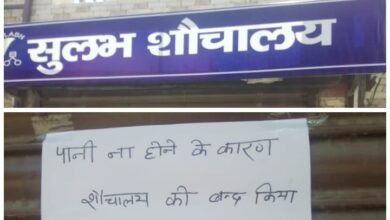 सुलभ शौचालय
पानी ना होने के कारण
शौचालय को बन्द किया